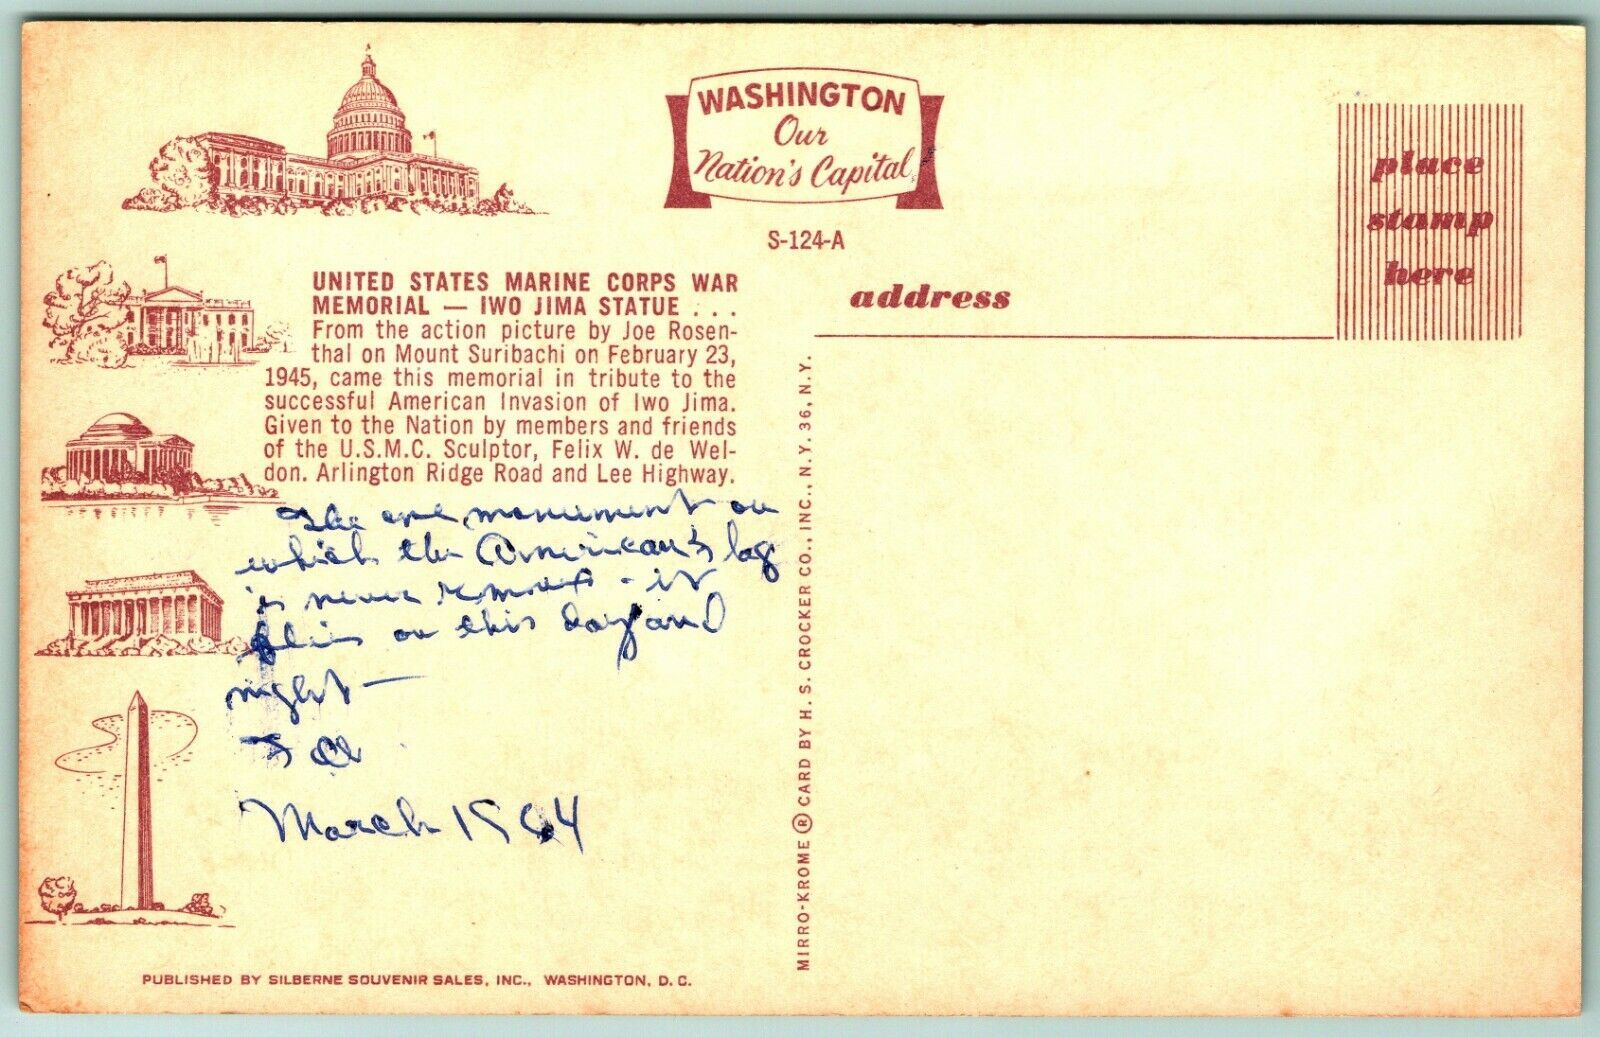 WASHINGTON
Our
Nation's Capital
S-124-A
place
stamp
here
address
UNITED STATES MARINE CORPS WAR
MEMORIAL — IWO JIMA STATUE . . .
From the action picture by Joe Rosen-
thal on Mount Suribachi on February 23,
1945, came this memorial in tribute to the
successful American Invasion of Iwo Jima.
Given to the Nation by members and friends
of the U.S.M.C. Sculptor, Felix W. de Wel-
don. Arlington Ridge Road and Lee Highway.
The one monument on
which the American flag
is never removed - it
flies on this day and
night —
March 1964
MIRRO-KROME ® CARD BY H. S. CROCKER CO., INC., N.Y. 36, N.Y.
PUBLISHED BY SILBERNE SOUVENIR SALES, INC., WASHINGTON, D. C.